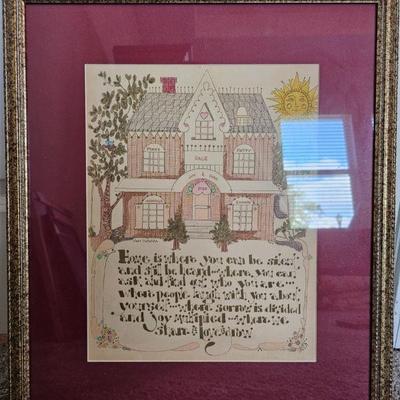 HALE
Home is where you can be silent
and still be heard ~ where you can
ask and find out who you are...
where people laugh with you about
yourself ~ where sorrow is divided
and Joy multiplied ~ where we
Share & love & Grow